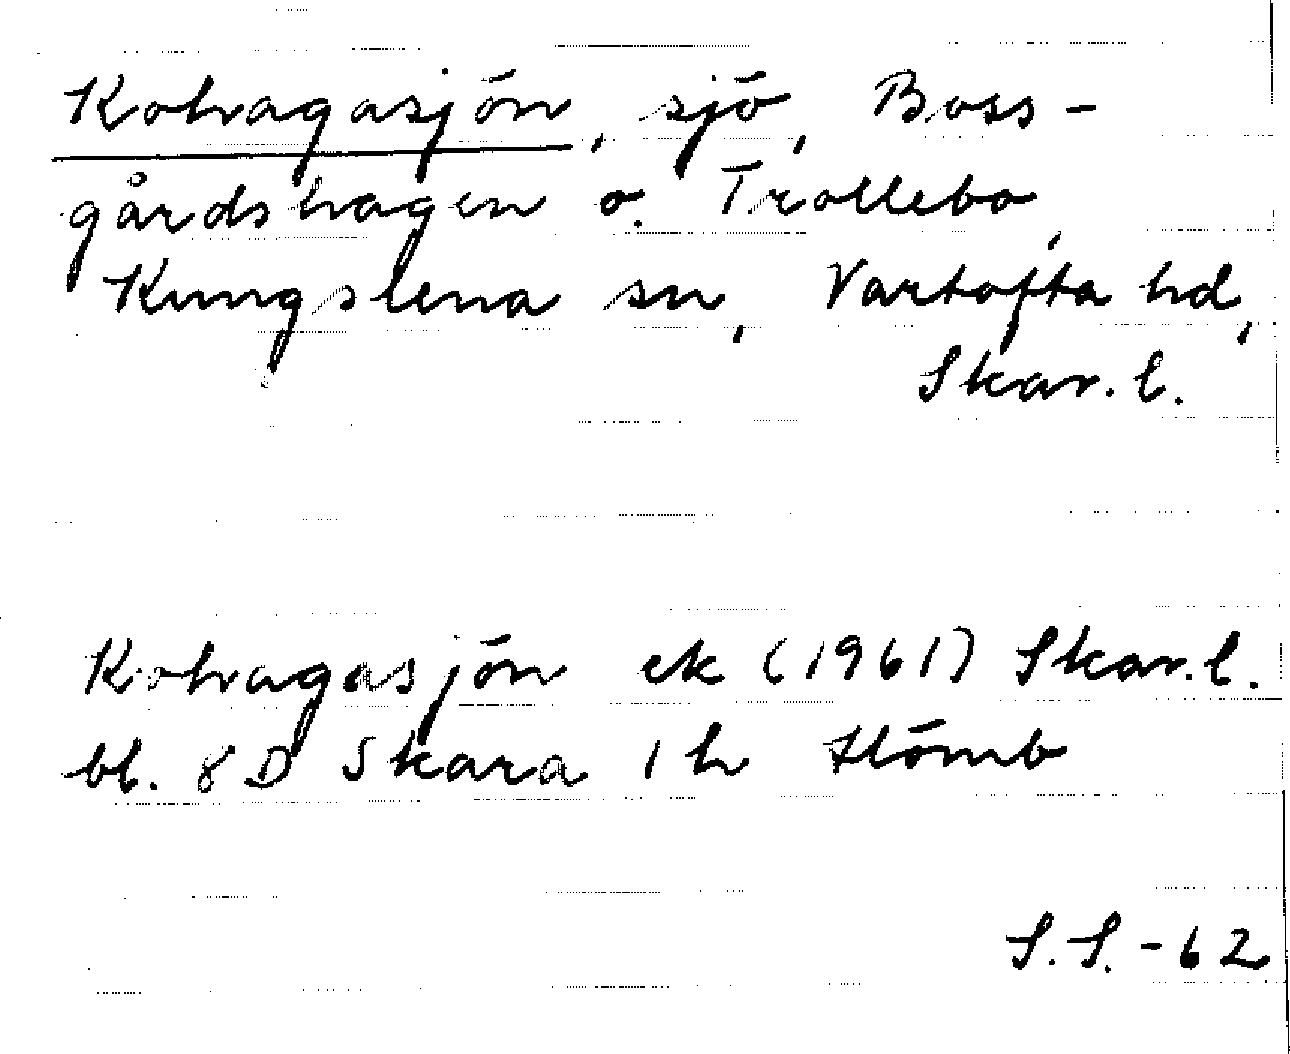 Kohagasjön, sjö, Boss-
gårdshagen o. Trollebo,
Kungslena sn, Vartofta hd,
Skar. l.
Kohagasjön ek (1961) Skar. l.
bl. 8 D Skara 1 h Stömb
S.S. -62